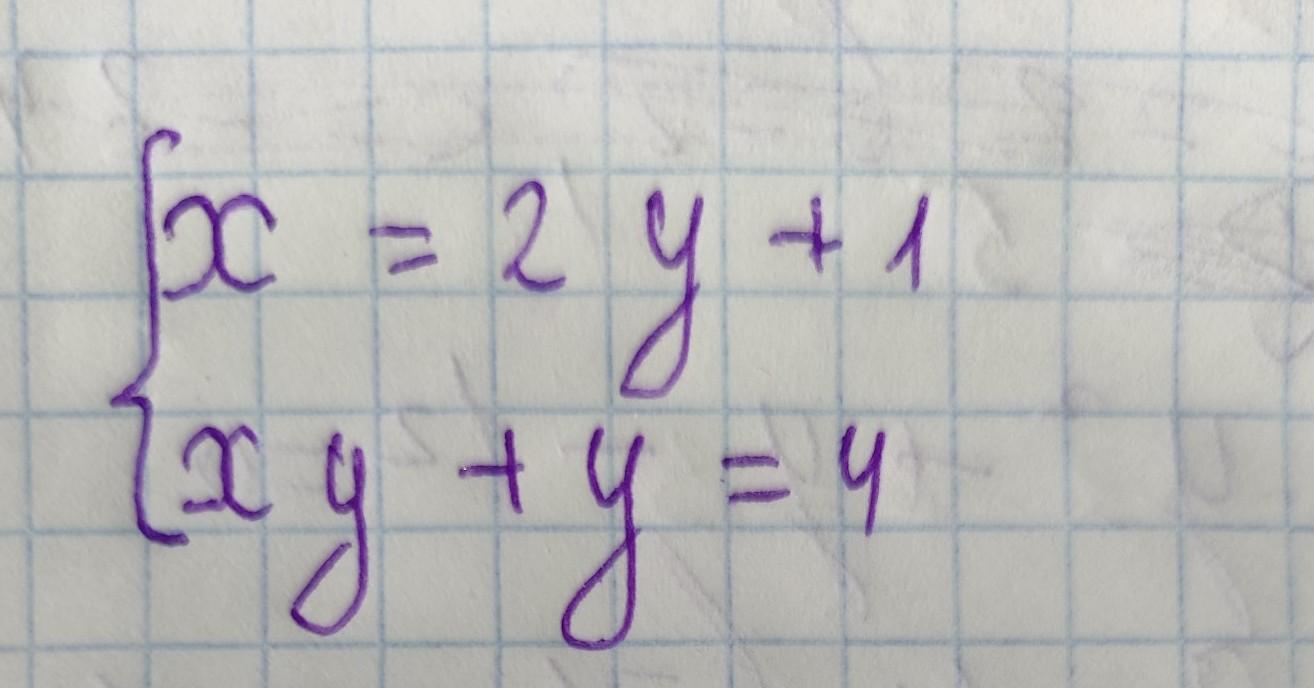 x = 2y + 1
xy + y = 4